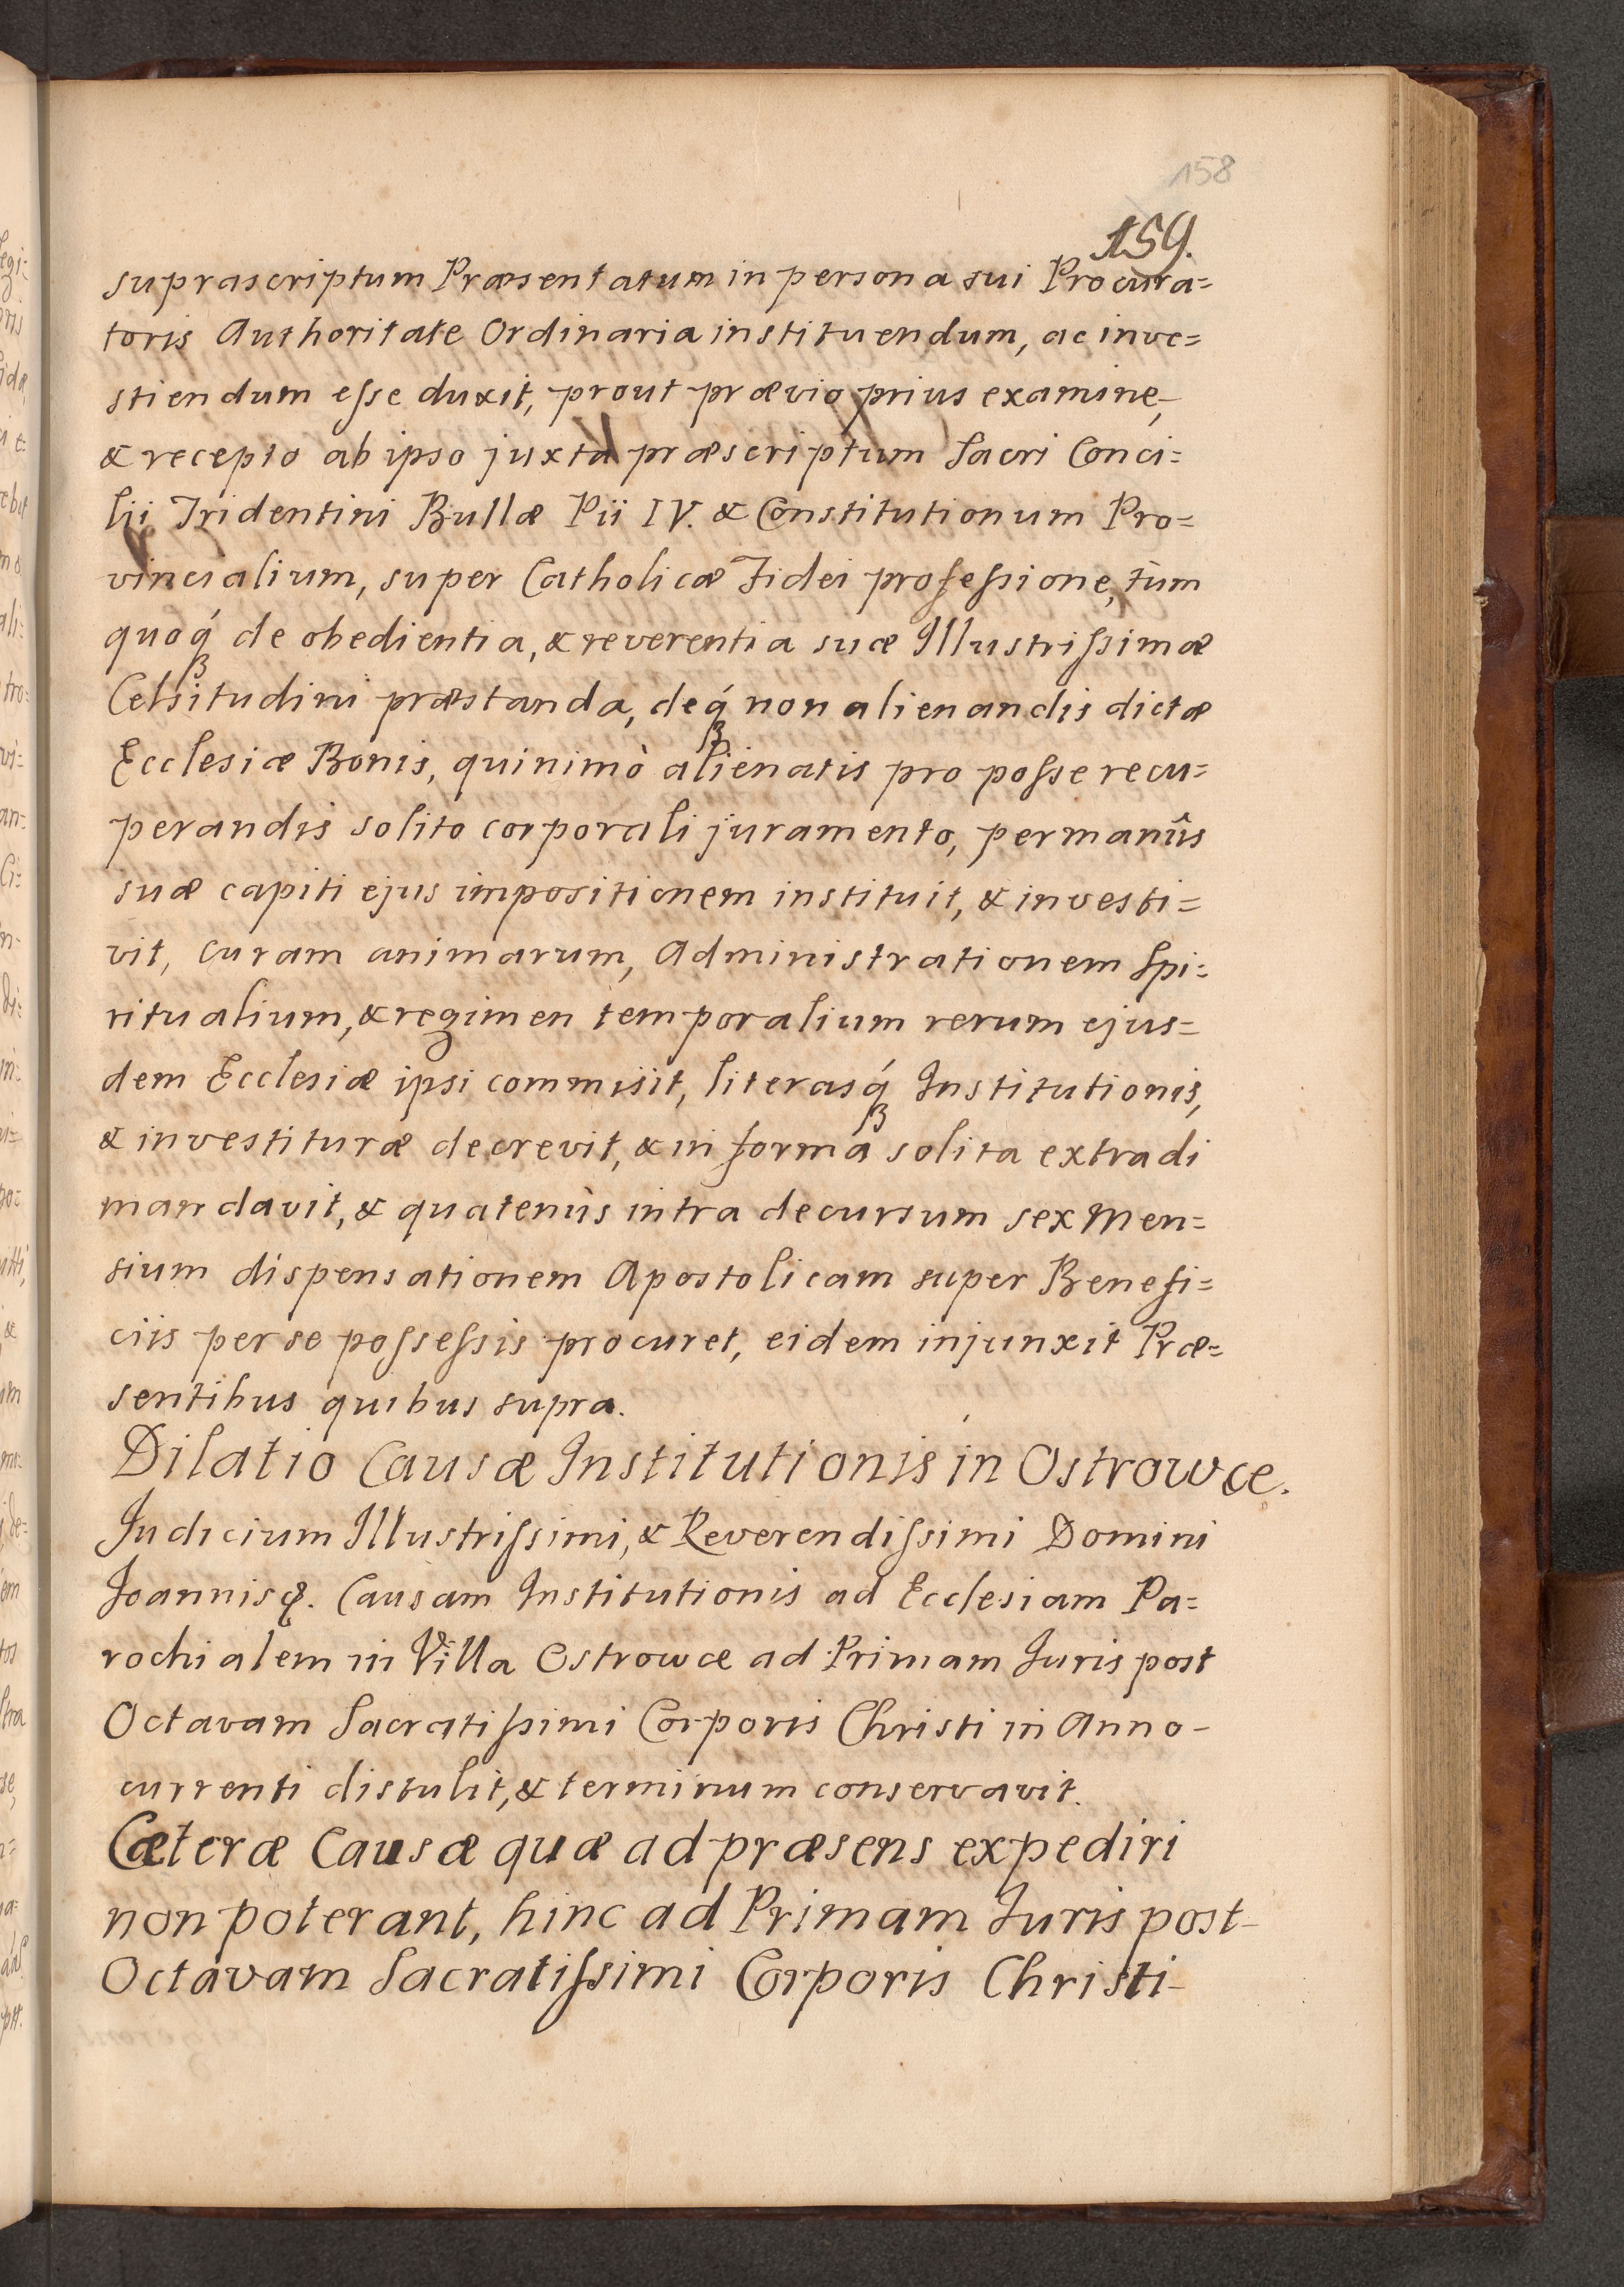 158
159.
suprascriptum Præsentatum in persona sui Procura=
toris Authoritate Ordinaria instituendum, ac inve=
stiendum eſse duxit, prout prævio prius examine,
& recepto ab ipso juxtà præscriptum Sacri Conci=
lii Tridentini Bullæ Pii IV. & Constitutionum Pro=
vincialium, super Catholicæ Fidei profeſsione, tùm
quoq́ꝫ de obedientia, & reverentia suæ Illustriſsimæ
Celsitudini præstanda, deq́ꝫ non alienandis dictæ
Ecclesiæ Bonis, quinimò alienatis pro poſse recu=
perandis solito corporali juramento, per manûs
suæ capiti ejus impositionem instituit, & investi=
vit, curam animarum, Administrationem Spi=
ritualium, & regimen temporalium rerum ejus=
dem Ecclesiæ ipsi commisit, literasq́ꝫ Institutionis,
& investituræ decrevit, & in forma solita extradi
mandavit, & quatenùs intra decursum sex Men=
sium dispensationem Apostolicam super Benefi=
ciis per se poſseſsis procuret, eidem injunxit Præ=
sentibus quibus supra.
Dilatio Causæ Institutionis in Ostrowce.
Judicium Illustriſsimi, & Reverendiſsimi Domini
Joannis &. Causam Institutionis ad Ecclesiam Pa=
rochialem in Villa Ostrowce ad Primam Juris post
Octavam Sacratiſsimi Corporis Christi in Anno
currenti distulit, & terminum conservavit.
Cæteræ Causæ quæ ad præsens expediri
non poterant, hinc ad Primam Juris post
Octavam Sacratiſsimi Corporis Christi